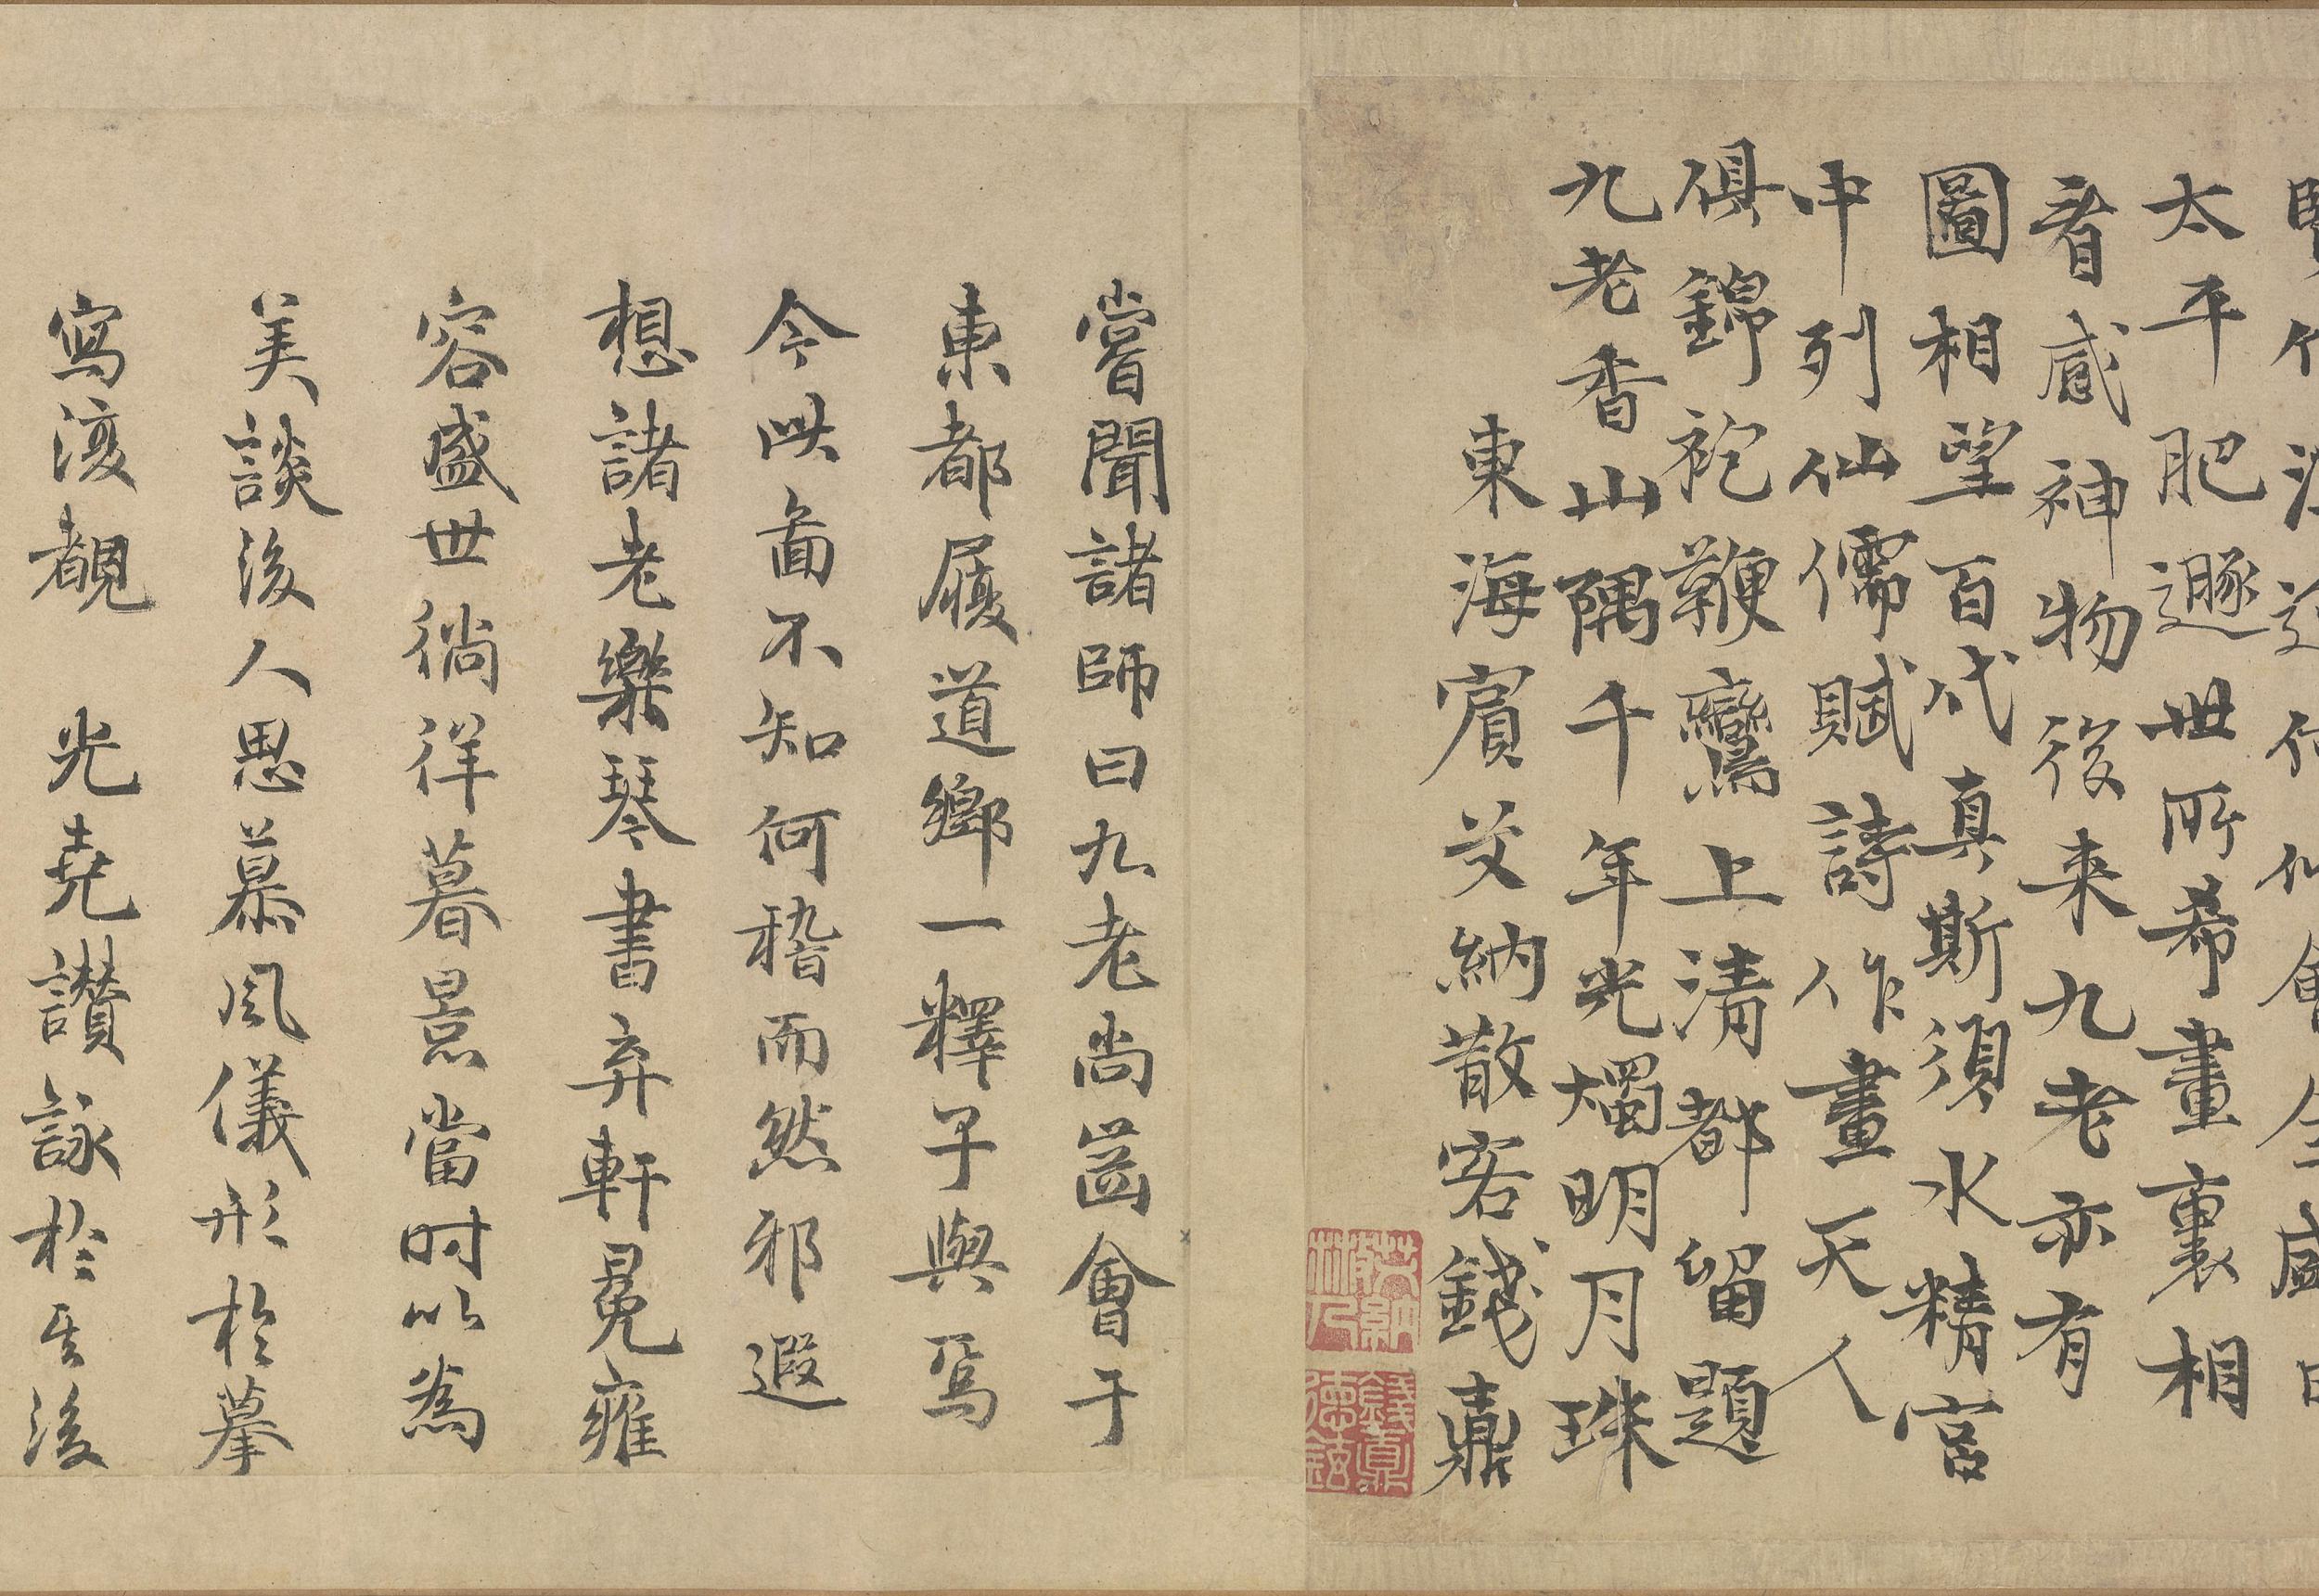 太平肥遯世所希畫裏相
看感神物後来九老亦有
圖相望百代真斯須水精宮
中列仙儒賦詩作畫天人
俱錦袍鞭鸞上清都留題
九老香山隅千年光燭明月珠
東海賓芟納散客錢鼒
嘗聞諸師曰九老尚齒會于
東都履道鄉一釋子與焉
今此啚不知何稽而然邪遐
想諸老樂琴書弃軒冕雍
容盛世徜徉暮景當时以為
美談後人思慕風儀形於摹
寫復覩 光堯讃詠於其後